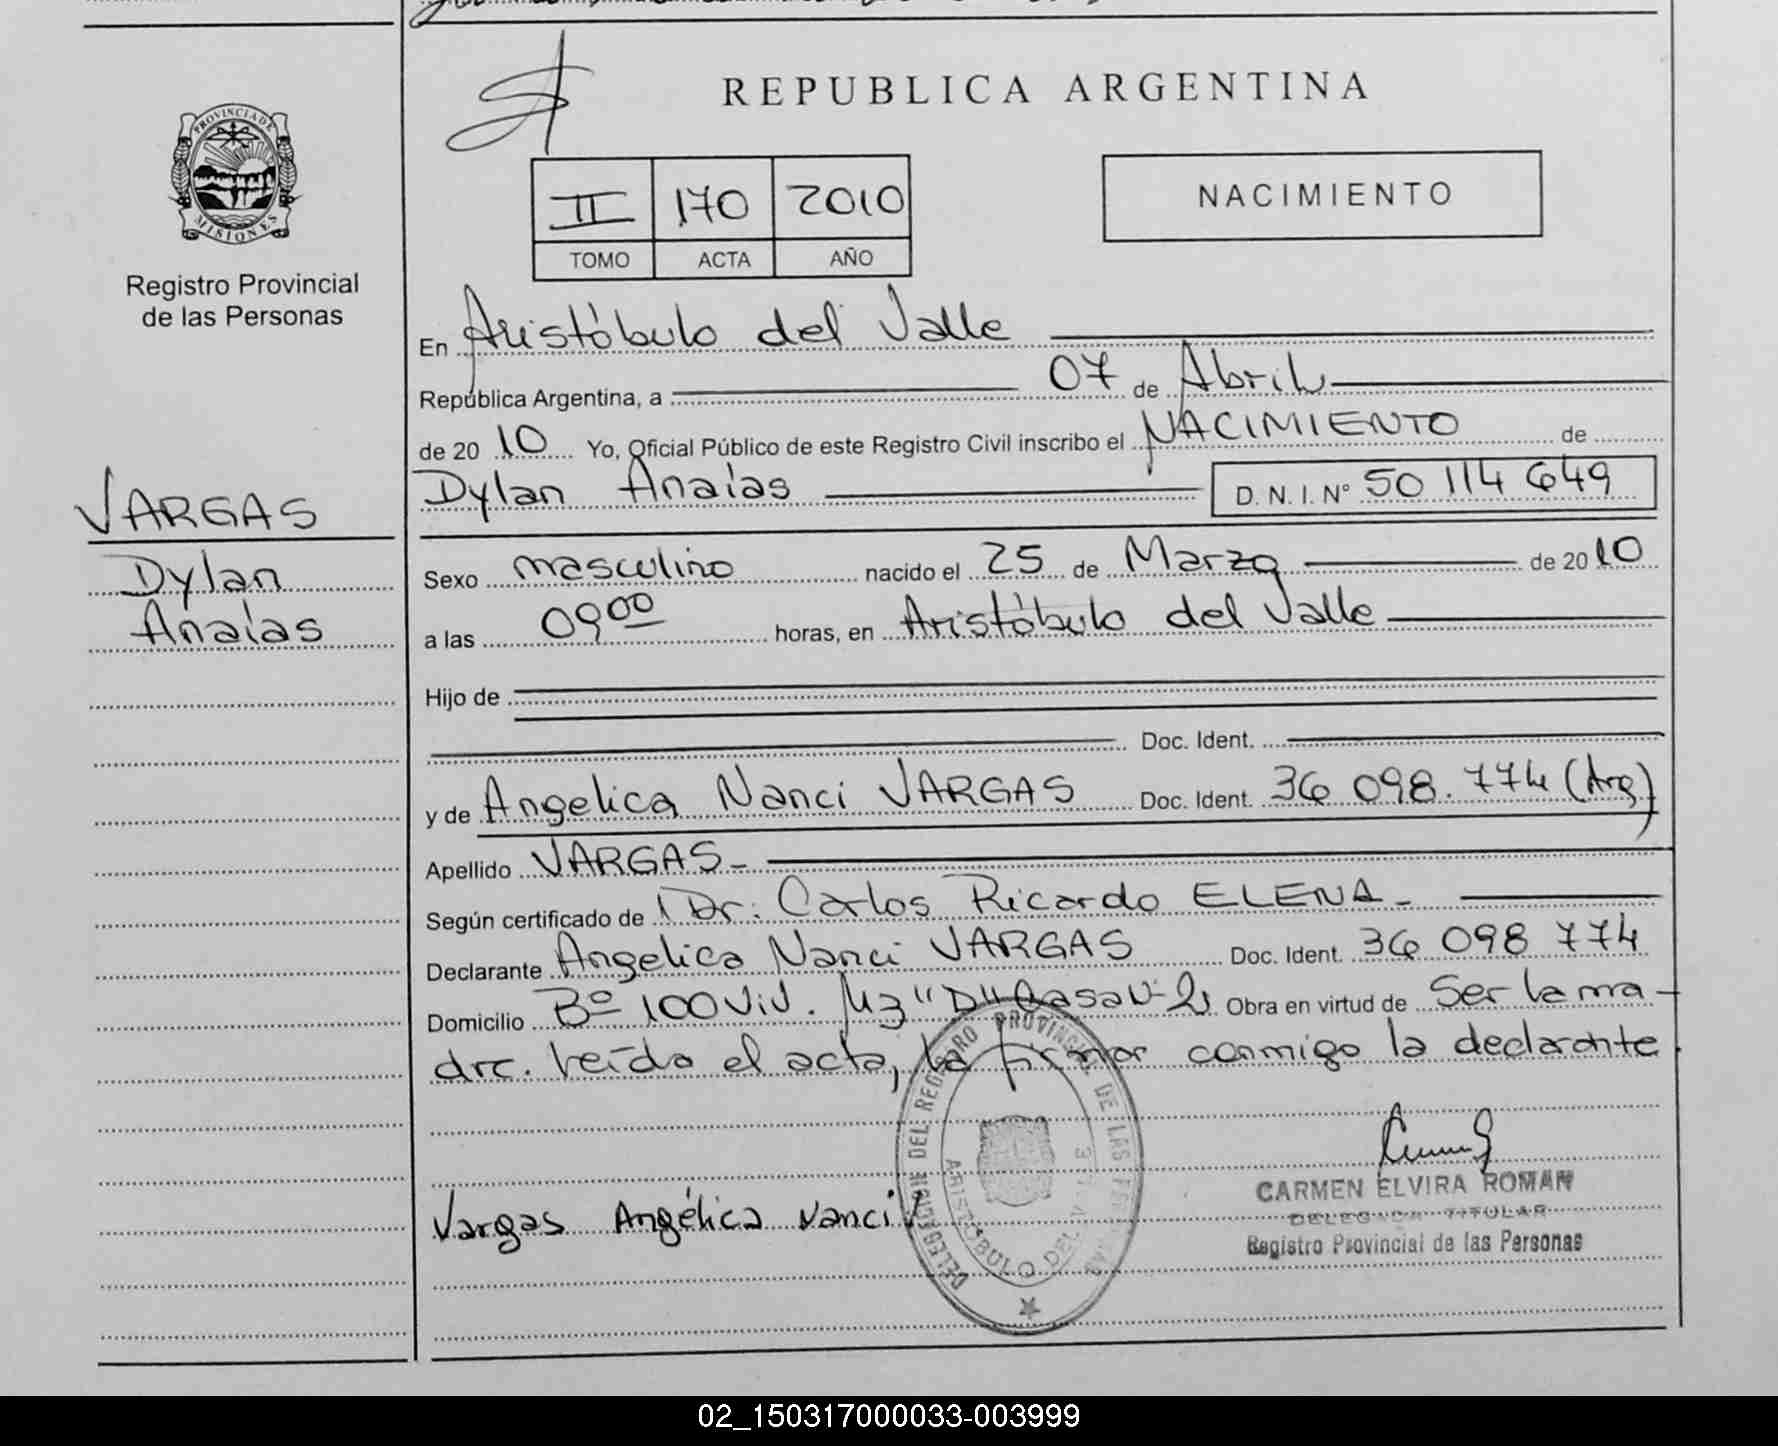 REPUBLICA ARGENTINA
PROVINCIA DE
MISIONES
Registro Provincial
de las Personas
II 170 2010
TOMO ACTA AÑO
NACIMIENTO
En Aristóbulo del Valle
República Argentina, a 07 de Abril
de 20 10 Yo, Oficial Público de este Registro Civil inscribo el NACIMIENTO de
Dylan Anaías D. N. I. N° 50 114 649
VARGAS
Dylan
Anaías
Sexo masculino nacido el 25 de Marzo de 20 10
a las 09 00 horas, en Aristóbulo del Valle
Hijo de
Doc. Ident.
y de Angelica Nanci VARGAS Doc. Ident. 36 098.774 (Arg)
Apellido VARGAS-
Según certificado de Dr. Carlos Ricardo ELENA-
Declarante Angelica Nanci VARGAS Doc. Ident. 36 098 774
Domicilio Bº 100 Viv. Mz "D" Casa Obra en virtud de Ser la ma-
dre. Leída el acta, la firmar conmigo la declarante.
DELEGACIÓN DEL REGISTRO PROVINCIAL DE LAS PERSONAS
ARISTÓBULO DEL VALLE
Vargas Angélica Nanci
CARMEN ELVIRA ROMAN
DELEGADA TITULAR
Registro Provincial de las Personas
02_150317000033-003999